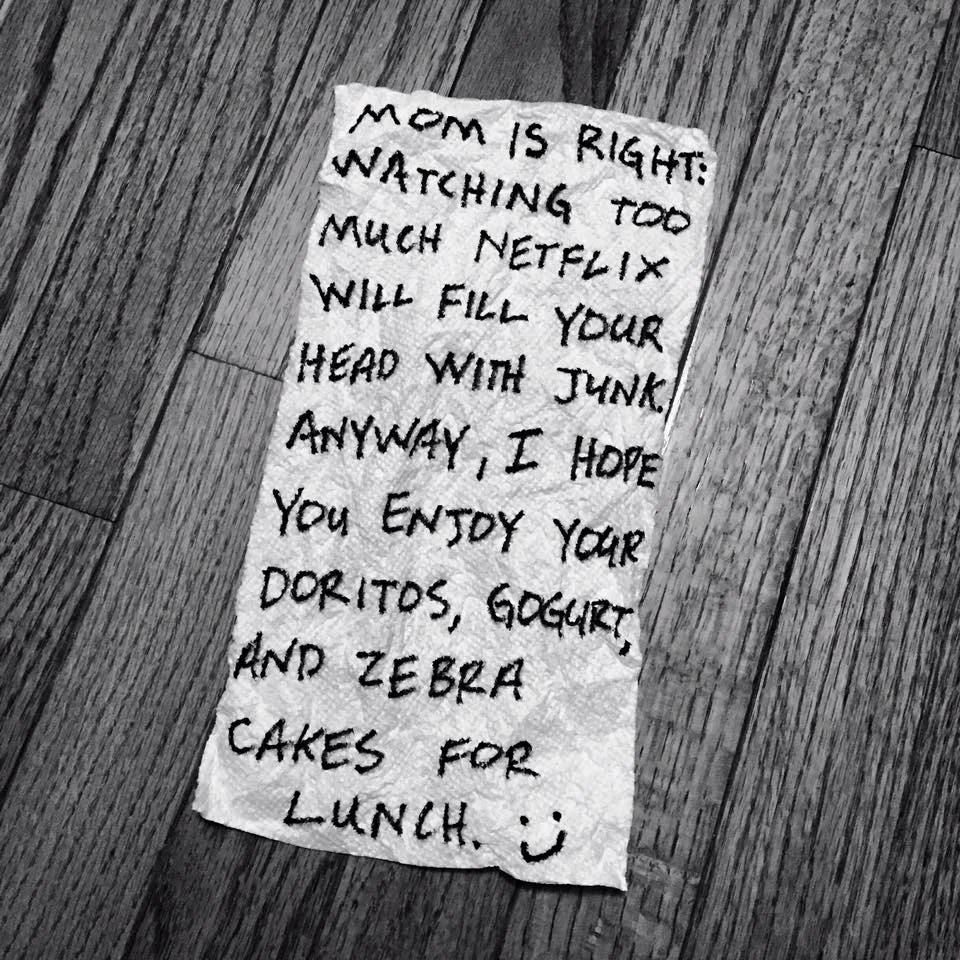 MOM IS RIGHT:
WATCHING TOO
MUCH NETFLIX
WILL FILL YOUR
HEAD WITH JUNK.
ANYWAY, I HOPE
YOU ENJOY YOUR
DORITOS, GOGURT,
AND ZEBRA
CAKES FOR
LUNCH. :)